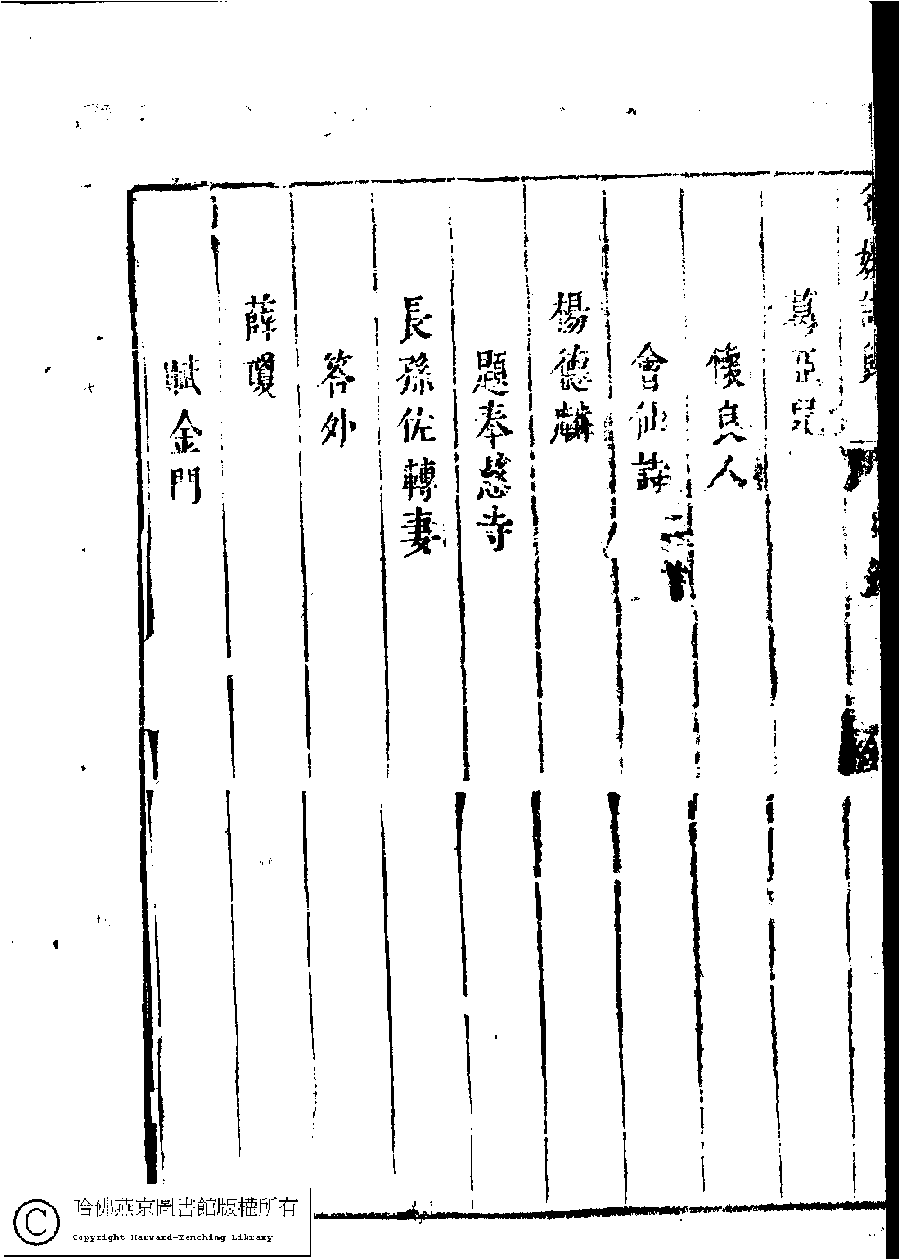 葛亞兒
懷良人
會仙詩
楊德麟
題奉慈寺
長孫佐轉妻
答外
薛瓊
賦金門
哈佛燕京圖書館版權所有
Copyright Harvard-Yenching Library